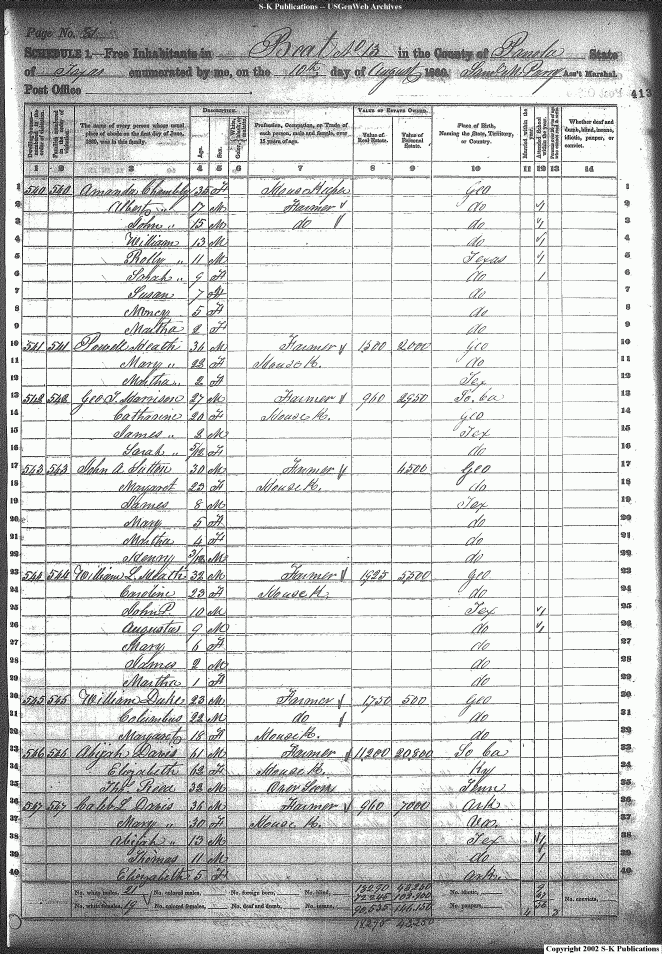 S-K Publications -- USGenWeb Archives
Page No. 51
SCHEDULE 1.—Free Inhabitants in Beat No 13 in the County of Panola State
of Texas enumerated by me, on the 10th day of August 1860. Ass't Marshal.
Post Office
413
DESCRIPTION. VALUE OF ESTATE OWNED.
The name of every person whose usual place of abode on the first day of June, 1860, was in this family.
Age. Sex.
Profession, Occupation, or Trade of each person, male and female, over 15 years of age.
Value of Real Estate. Value of Personal Estate.
Place of Birth, Naming the State, Territory, or Country.
Whether deaf and dumb, blind, insane, idiotic, pauper, or convict.
1 2 3 4 5 6 7 8 9 10 11 12 13 14
1 540 540 Amanda Chambly 35 F House Keeper Geo 1
2 Albert " 17 M Farmer do 2
3 John " 15 M do do 3
4 William 13 M do 4
5 Rolly " 11 M Texas 5
6 Sarah " 9 F do 1 6
7 Susan " 7 F do 7
8 5 F do 8
9 Martha 2 F do 9
10 541 541 Powell Heath 34 M Farmer 1500 2000 Geo 10
11 Mary " 22 F House K. do 11
12 Martha " 2 F Tex 12
13 542 542 Geo T. Harrison 27 M Farmer 960 2950 So. Ca 13
14 Catharine 20 F House K. Geo 14
15 James " 2 M Tex 15
16 Sarah " 5/12 F do 16
17 543 543 John A Sutton 30 M Farmer 4500 Geo 17
18 Margaret 23 F House K. do 18
19 James 8 M Tex 19
20 Mary 5 F do 20
21 Martha 4 F do 21
22 Henry 3/12 M do 22
23 544 544 William L. Heath 32 M Farmer 1925 5500 Geo 23
24 Caroline 23 F House K do 24
25 John P. 10 M Tex 25
26 Augustus 9 M do 26
27 Mary 6 F do 27
28 James 2 M do 28
29 Martha 1 F do 29
30 545 545 William Duke 23 M Farmer 1750 500 Geo 30
31 Columbus 22 M do do 31
32 Margaret 18 F House K. do 32
33 546 546 Abijah Davis 61 M Farmer 11,200 20,800 So Ca 33
34 Elizabeth 62 F House K. Ky 34
35 Thos. Reed 32 M Over Seer Tenn 35
36 547 547 Caleb L Davis 36 M Farmer 960 7000 Ark 36
37 Mary " 30 F House K. 37
38 Abijah " 13 M Tex 38
39 Thomas 11 M do 1 39
40 Elizabeth 5 F Ark 40
No. white males, 21 No. colored males, No. foreign born, No. blind, No. idiotic, No. convicts,
No. white females, 19 No. colored females, No. deaf and dumb, No. insane, No. paupers,
18295 43250
Copyright 2002 S-K Publications